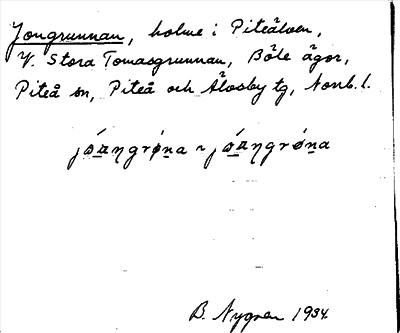 Jongrunnan, holme i Piteälven,
V. Stora Tomasgrunnan, Böle ägor,
Piteå sn, Piteå och Älvsby tg, Norrb. l.
B. Nygren 1934.